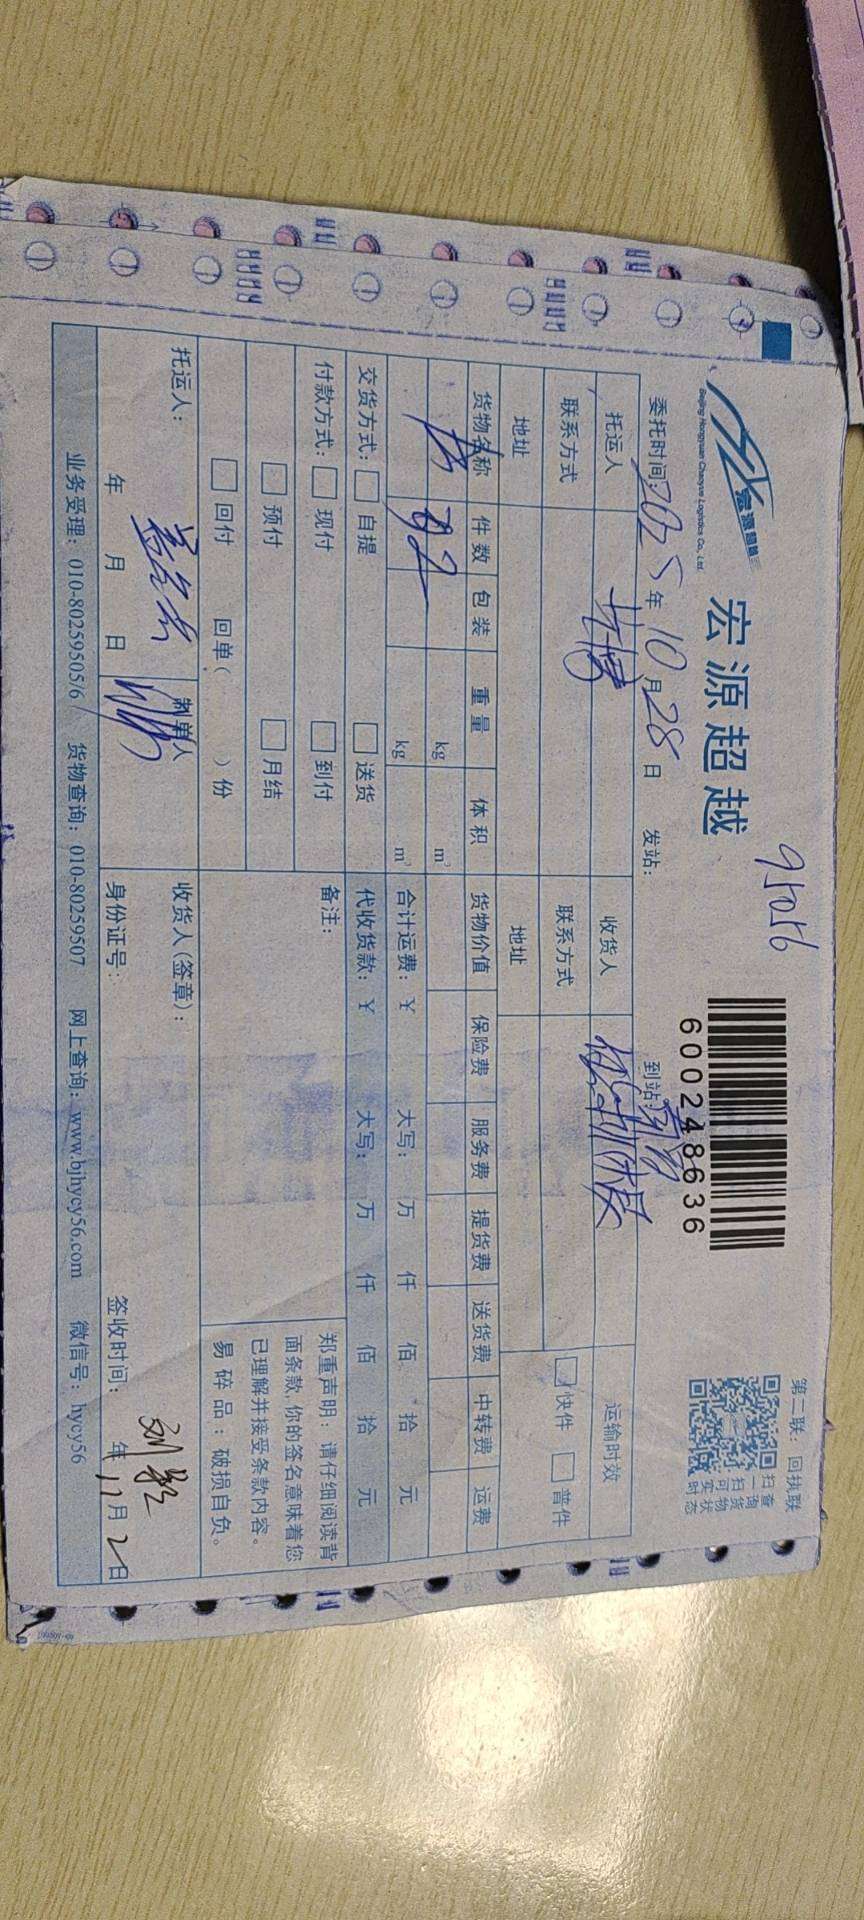 宏源超越
Beijing Hongyuan Chaoyue Logistics Co., Ltd.
宏源超越
95056
600248636
第二联：回执联
扫一扫
查询货物
可实时状态
委托时间：2025年10月28日 发站： 到站：
托运人 收货人 运输时效
联系方式 联系方式 快件 普件
地址 地址
货物名称 件数 包装 重量 体积 货物价值 保险费 服务费 提货费 送货费 中转费 运费
kg m³
kg m³ 合计运费：￥ 大写： 万 仟 佰 拾 元
交货方式： 自提 送货 代收货款：￥ 大写： 万 仟 佰 拾 元
付款方式： 现付 到付 备注：
预付 月结
回付 回单（ ）份
郑重声明：请仔细阅读背
面条款，你的签名意味着您
已理解并接受条款内容。
易碎品：破损自负。
托运人： 制单人 收货人（签章）：
年 月 日 身份证号： 签收时间： 年11月2日
业务受理：010-80259505/6 货物查询：010-80259507 网上查询：www.bjhycy56.com 微信号：hycy56